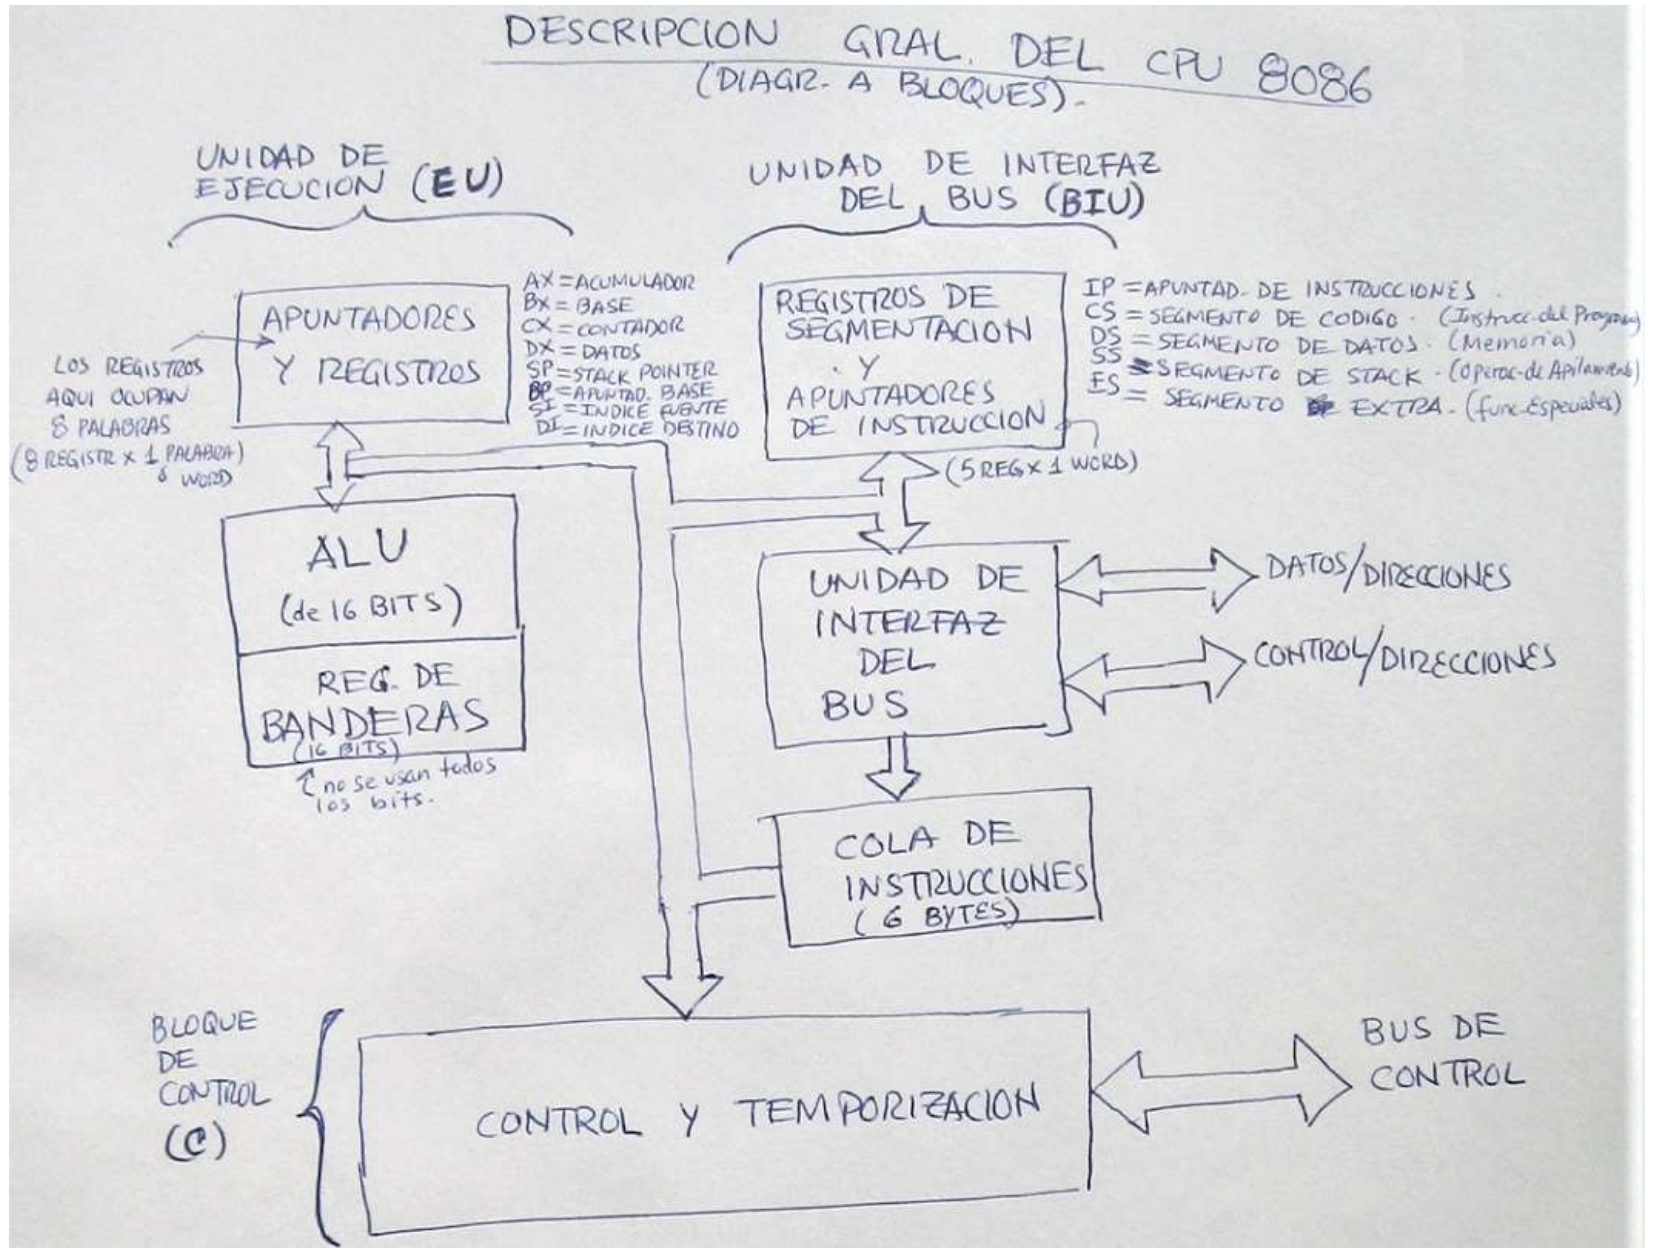 DESCRIPCION GRAL. DEL CPU 8086
(DIAGR. A BLOQUES).
UNIDAD DE
EJECUCION (EU)
UNIDAD DE INTERFAZ
DEL BUS (BIU)
APUNTADORES
Y REGISTROS
LOS REGISTROS
AQUI OCUPAN
8 PALABRAS
(8 REGISTR x 1 PALABRA)
ó WORD
AX = ACUMULADOR
BX = BASE
CX = CONTADOR
DX = DATOS
SP = STACK POINTER
BP = APUNTAD. BASE
SI = INDICE FUENTE
DI = INDICE DESTINO
REGISTROS DE
SEGMENTACION
Y
APUNTADORES
DE INSTRUCCION
IP = APUNTAD. DE INSTRUCCIONES.
CS = SEGMENTO DE CODIGO. (Instrucc. del Programa)
DS = SEGMENTO DE DATOS. (Memoria)
SS = SEGMENTO DE STACK. (Operac. de Apilamiento)
ES = SEGMENTO EXTRA. (func. Especiales)
(5 REG x 1 WORD)
ALU
(de 16 BITS)
REG. DE
BANDERAS
(16 BITS)
no se usan todos
los bits.
UNIDAD DE
INTERFAZ
DEL
BUS
DATOS/DIRECCIONES
CONTROL/DIRECCIONES
COLA DE
INSTRUCCIONES
(6 BYTES)
BLOQUE
DE
CONTROL
(C)
CONTROL Y TEMPORIZACION
BUS DE
CONTROL